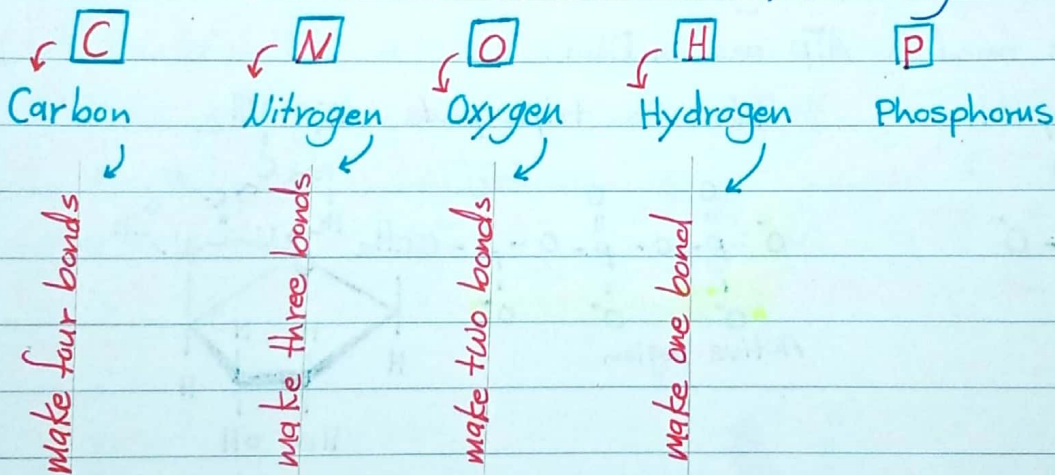 C N O H P
Carbon Nitrogen Oxygen Hydrogen Phosphorus
make four bonds
make three bonds
make two bonds
make one bond